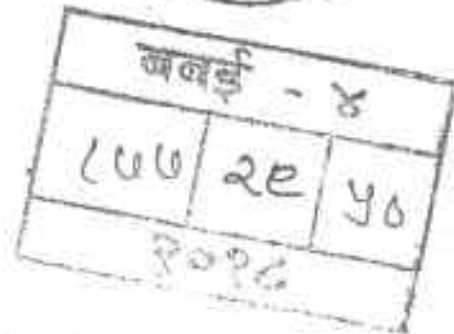 बबई - ४
८७७ २९ ५०
२०१८